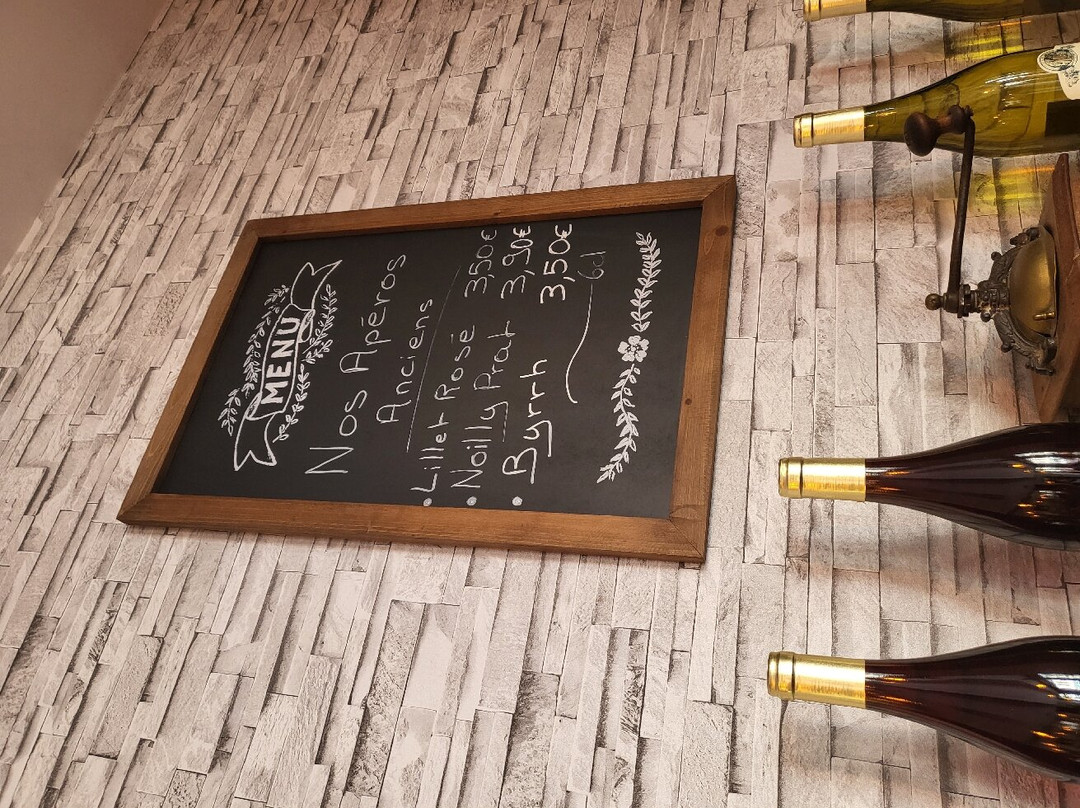 MENU
Nos Apéros
Anciens
• Lillet Rosé 3,50€
• Noilly Prat 3,90€
• Byrrh 3,50€
6cl